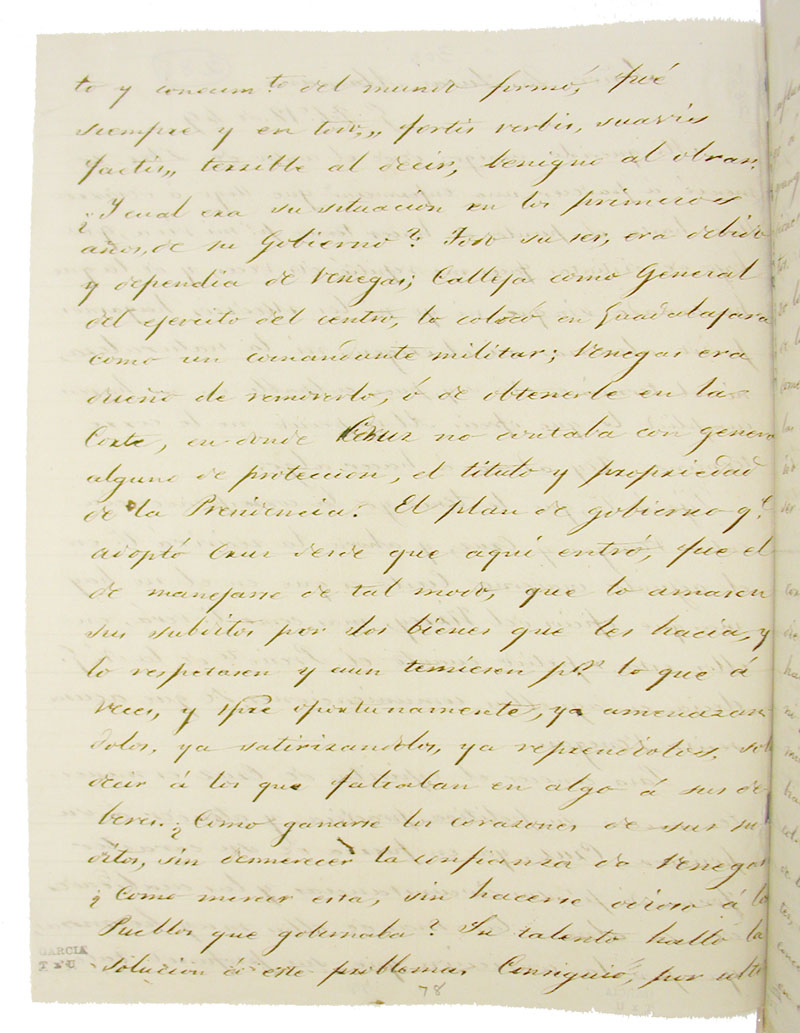 to y conocim.to del mundo formó, fué
siempre y en todo,, fortis verbis, suavis
factis,, terrible al decir, benigno al obrar.
¿Y cual era su situacion en los primeros
años, de su Gobierno? Todo su ser, era debido
y dependia de Venegas; Calleja como General
del ejercito del centro, lo colocó en Guadalajara
como un comandante militar; Venegas era
dueño de removerlo, ó de obtenerle en la
Corte, en donde Cruz no contaba con genero
alguno de proteccion, el titulo y propriedad
de la Presidencia. El plan de gobierno q.e
adoptó Cruz desde que aquí entró, fue el
de manejarse de tal modo, que lo amasen
sus subditos por los bienes que les hacia, y
lo respetasen y aun temiesen p.r lo que á
veces, y spre oportunamente, ya amenazan
dolos, ya satirizandolos, ya reprendiolos, sol
decir á los que faltaban en algo á sus de
beres. ¿Como ganarse los corazones de sus su
ditos, sin desmerecer la confianza de Venegas
¿Como merecer esta, sin hacerse odioso á lo
Pueblos que gobernaba? Su talento halló la
solucion á este problema. Consiguió, por ulti
78
GARCIA